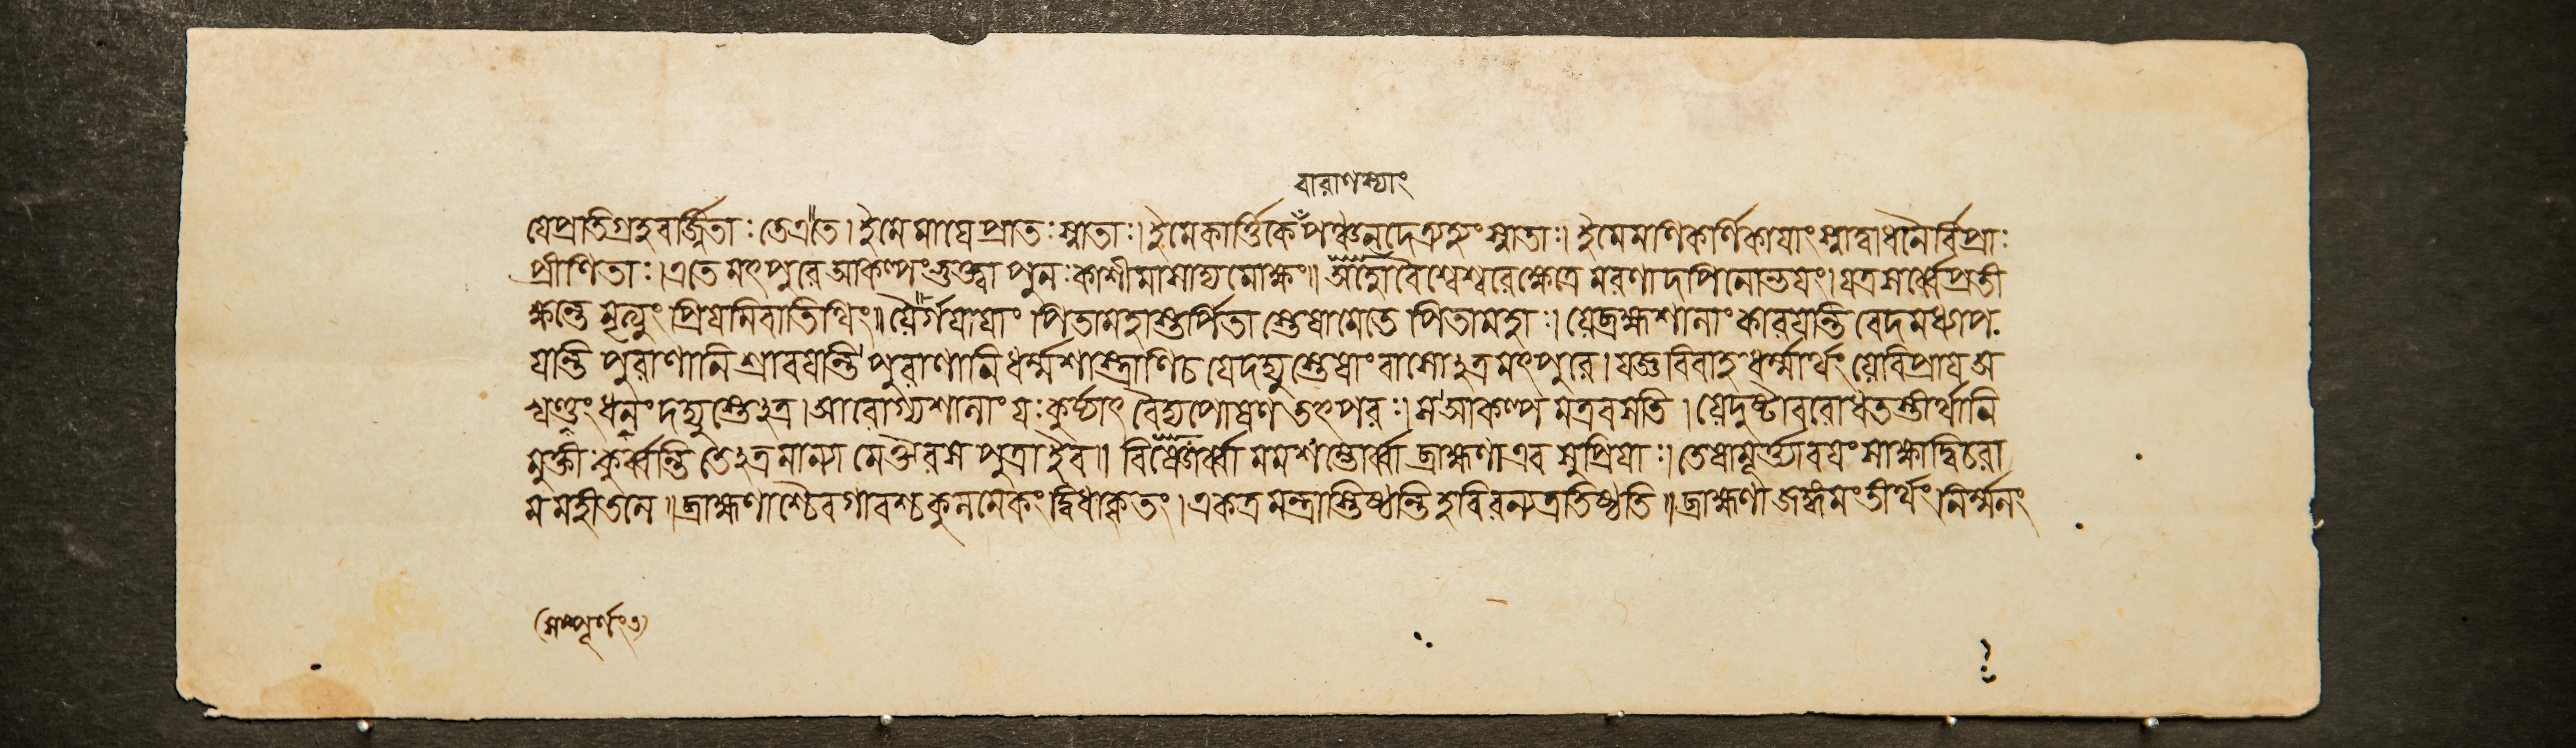 বারাণস্যাং
যেপ্রতিগ্রহবর্জিতাঃ তেএতে। ইমে মাঘেপ্রাতঃস্নাতাঃ। ইমেকার্ত্তিকেপঞ্চনদেত্র্যহং স্নাতাঃ। ইমেমণিকর্ণিকাযাংস্নাত্বাধনৈর্বিপ্রাঃ
প্রীণিতাঃ। এতে মৎপুরে আকল্পংভুক্ত্বা পুনঃকাশীমাসাদ্যমোক্ষং॥ অহোবৈশ্বেশ্বরেক্ষেত্রে মরণাদপিনোভযং। যত্রসর্ব্বেপ্রতী
ক্ষন্তে মৃত্যুং প্রিযমিবাতিথিং॥ যৈর্গযাযাং পিতামহাস্তর্পিতা স্তেষামেতে পিতামহাঃ। যেব্রহ্মশালাং কারযন্তি বেদমধ্যাপ
যন্তি পুরাণানি শ্রাবযন্তি পুরাণানি ধর্ম্মশাস্ত্রাণিচ যেদদ্যুস্তেষাং বাসোঽত্র মৎপুরে। যজ্ঞবিবাহধর্ম্মার্থং যেবিপ্রায অ
খণ্ডং ধনং দদ্যুস্তেঽত্র। আরোগ্যশালাং যঃকুর্য্যাৎ বৈদ্যপোষণতৎপরঃ। স আকল্প মত্রবসেতি। যেদুষ্টাবরোধতস্তীর্থানি
মুক্তীকুর্ব্বন্তি তেঽত্র মান্যা মেঔরস পুত্রাইব॥ বিষ্ণোর্ব্বা মমশম্ভোর্ব্বা ব্রাহ্মণাএব সুপ্রিযাঃ। তেষাংমূর্ত্ত্যাবযং সাক্ষাদ্বিচরা
মমহীতলে॥ ব্রাহ্মণাশ্চৈবগাবশ্চকুলমেকং দ্বিধাকৃতং। একত্র মন্ত্রাস্তিষ্ঠন্তি হবিরন্যত্রতিষ্ঠতি॥ ব্রাহ্মণা জঙ্গমংতীর্থং নির্ম্মলং
(সম্পূর্ণং)